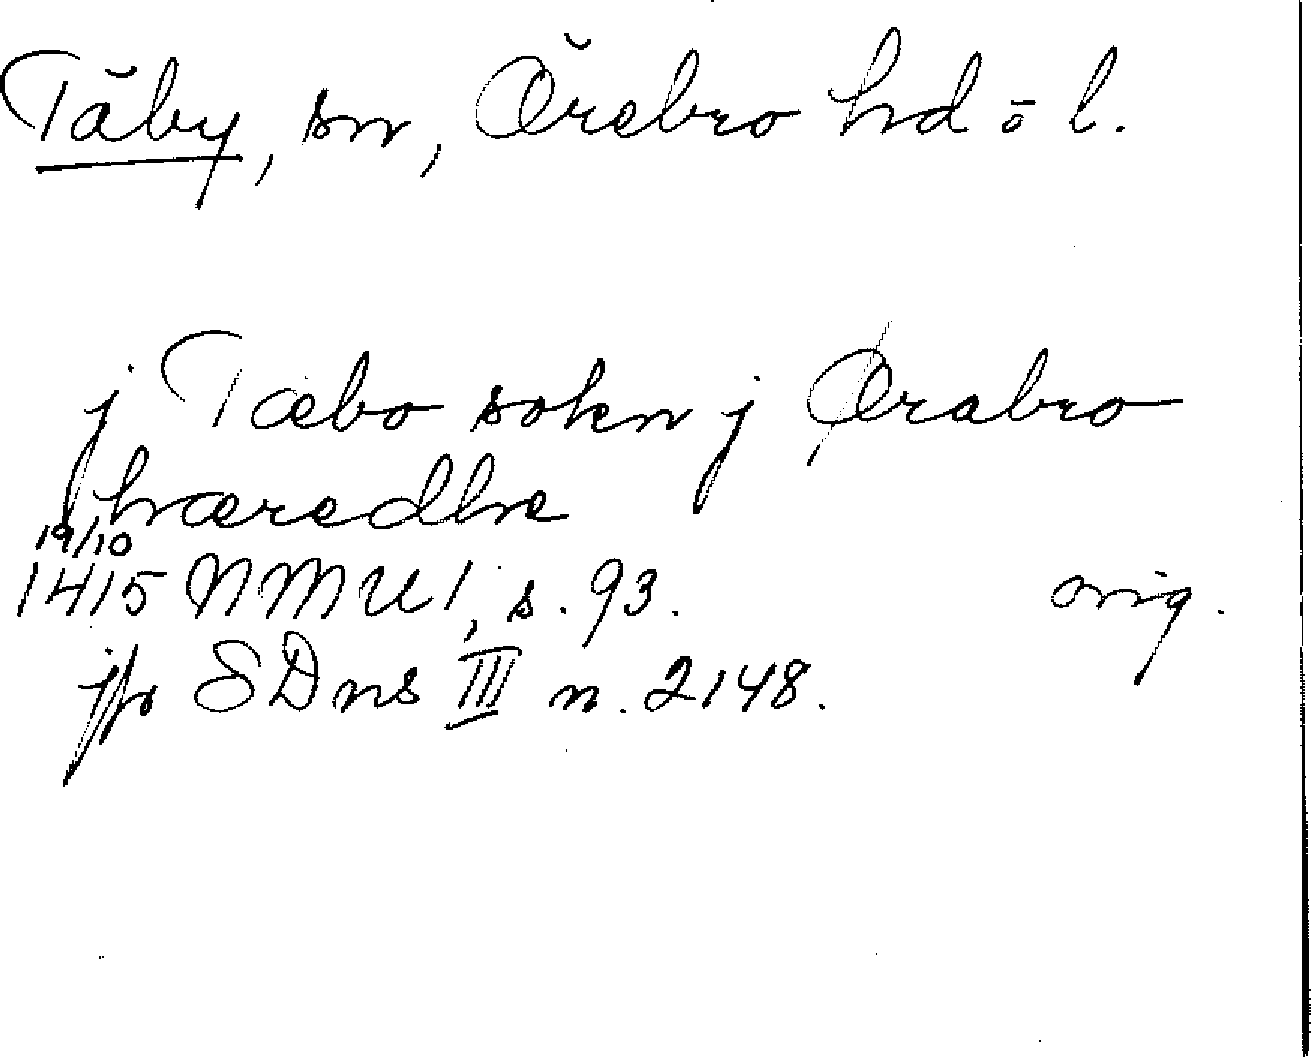 Täby, sn, Örebro hd ō l.
j Tæbo sokn j Ørabro
hæredhe
19/10
1415 NMU 1, s. 93. orig.
jfr SDns III n. 2148.